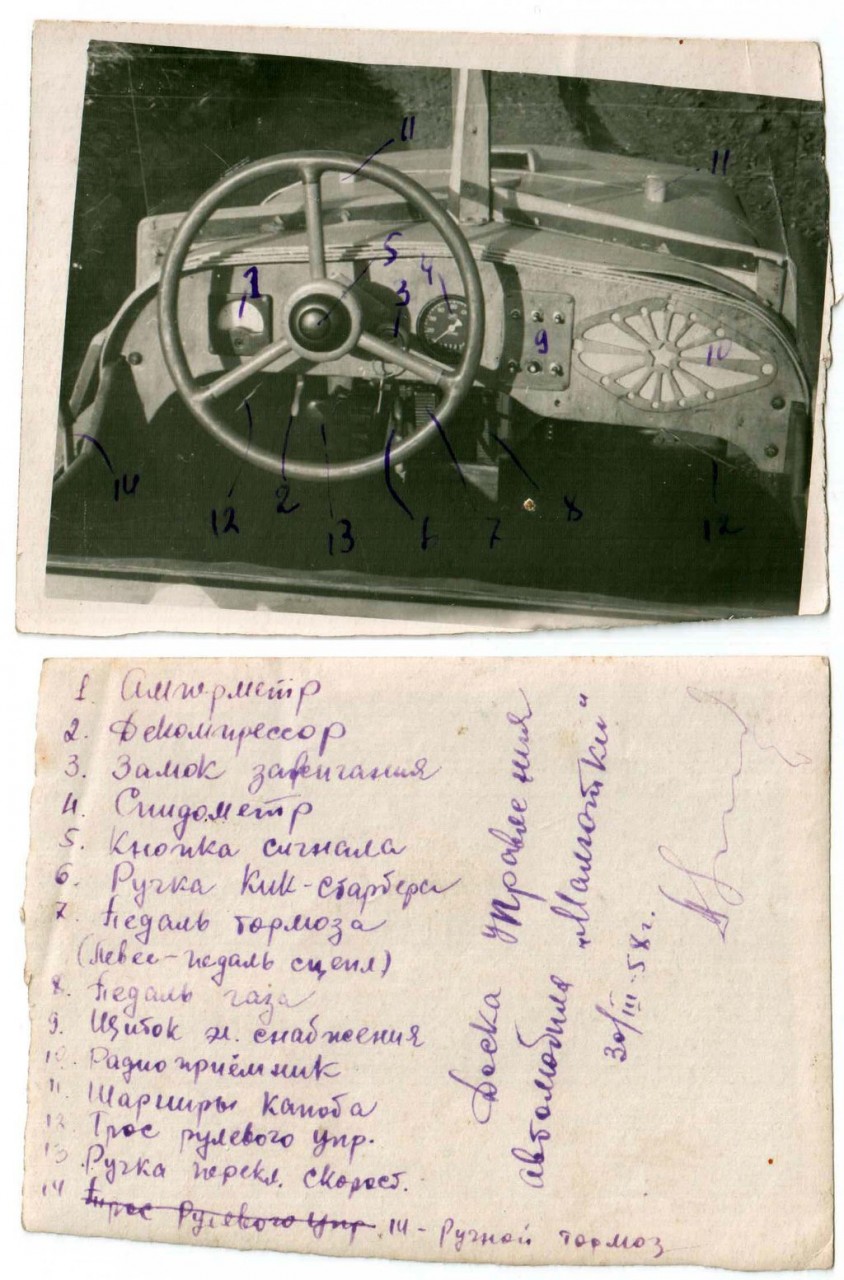 11
11
5
4
1
3
9
10
14
12
2
13
6
7
8
12
1 Амперметр
2. Декомпрессор
3. Замок зажигания
4. Спидометр
5. Кнопка сигнала
6. Ручка Кик-стартера
7 Педаль тормоза
(левее - педаль сцепл)
8. Педаль газа
9. Щиток эл. снабжения
10. Радиоприёмник
11. Шарниры капота
12 Трос рулевого упр.
13 Ручка перекл. скорост.
14 Трос Рулевого упр. 14 - Ручной тормоз
Доска управления
автомобиля „Малютки"
30/III-58г.